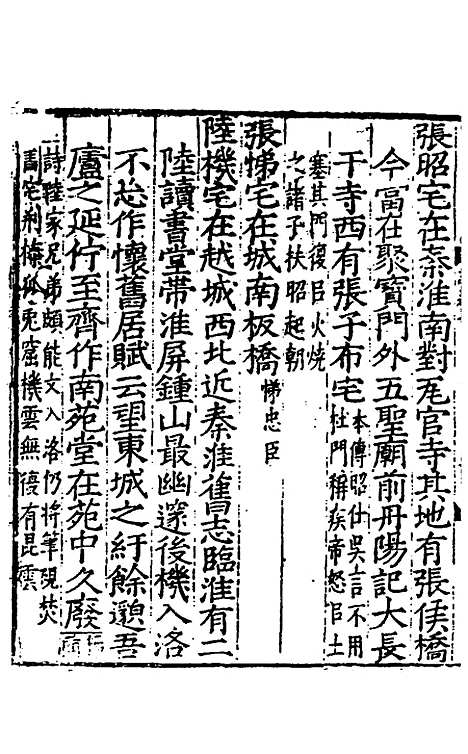 張昭宅在秦淮南對瓦官寺其地有張侯橋
今當在聚寶門外五聖廟前丹陽記大長
干寺西有張子布宅本傳昭仕吳言不用
杜門稱疾帝怒㠯土
塞其門復㠯火燒
之諸子扶昭起朝
張悌宅在城南板橋悌忠臣
陸機宅在越城西北近秦淮舊志臨淮有二
陸讀書堂帶淮屏鍾山最幽邃後機入洛
不忘作懷舊居賦云望東城之紆餘邈吾
廬之延佇至齊作南苑堂在苑中久廢
詩陸家兄弟頗能文入洛仍將筆硯焚
宅荊榛狐兎窟機雲無復有昆雲